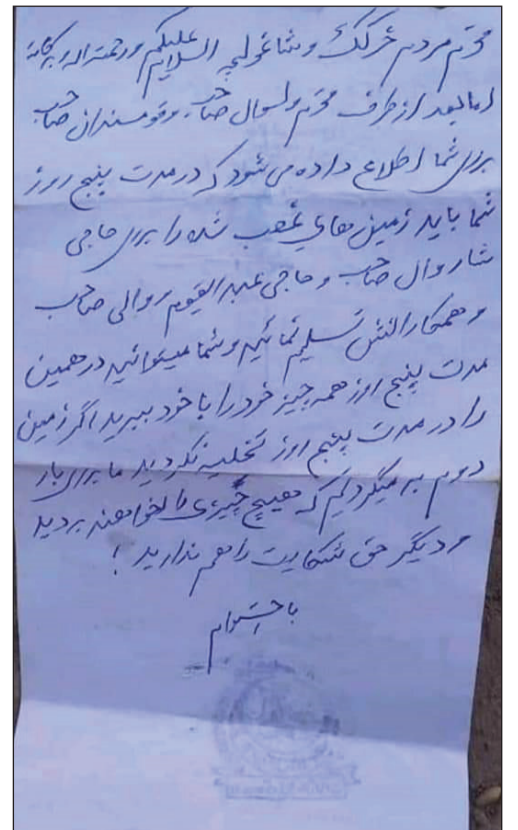 محترم مردم خرلک و شاغولجه السلام علیکم ورحمته الله وبرکاته
اما بعد از طرف محترم ولسوال صاحب و قومندان صاحب
برای شما اطلاع داده می شود که در مدت پنج روز
شما باید زمین های غصب شده را برای حاجی
شاروال صاحب و حاجی عبدالقیوم روالی صاحب
و همکارانش تسلیم نمائید و شما میتوانید در همین
مدت پنج روز همه چیز خود را با خود ببرید اگر زمین
را در مدت پنج روز تخلیه نکردید ما برای بار
دوم بر میگردیم که هیچ چیزی را نخواهند بردید
و دیگر حق شکایت را هم ندارید !
با احترام